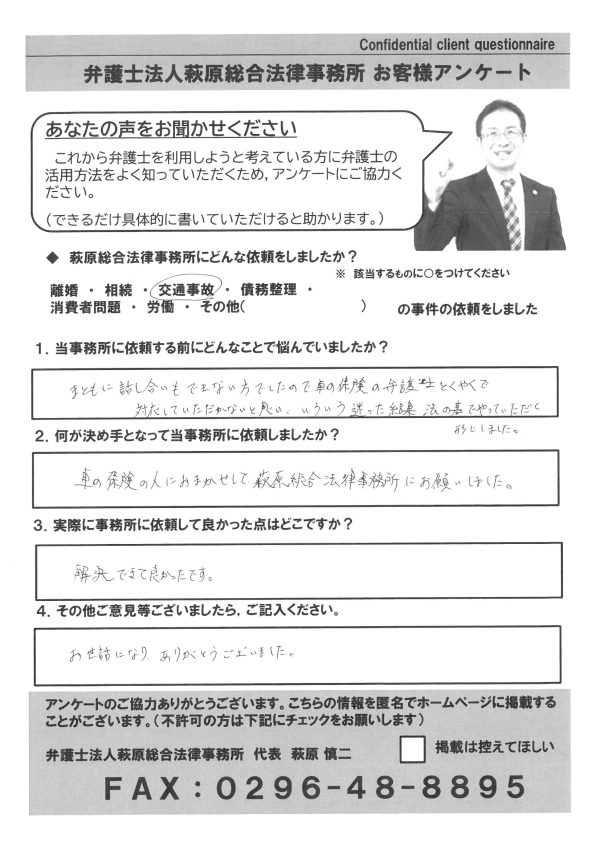 Confidential client questionnaire
弁護士法人萩原総合法律事務所 お客様アンケート
あなたの声をお聞かせください
これから弁護士を利用しようと考えている方に弁護士の
活用方法をよく知っていただくため，アンケートにご協力く
ださい。
（できるだけ具体的に書いていただけると助かります。）
◆ 萩原総合法律事務所にどんな依頼をしましたか？
※ 該当するものに○をつけてください
離婚 ・ 相続 ・ 交通事故 ・ 債務整理 ・
消費者問題 ・ 労働 ・ その他( ) の事件の依頼をしました
1．当事務所に依頼する前にどんなことで悩んでいましたか？
まともに話し合いもできない方でしたので車の保険の弁護士とくやくで
対応していただかないと思い、いろいろ迷った結果 法の基でやっていただく
形にしました。
2．何が決め手となって当事務所に依頼しましたか？
車の保険の人におまかせして萩原総合法律事務所にお願いしました。
3．実際に事務所に依頼して良かった点はどこですか？
解決できて良かったです。
4．その他ご意見等ございましたら，ご記入ください。
お世話になり、ありがとうございました。
アンケートのご協力ありがとうございます。こちらの情報を匿名でホームページに掲載する
ことがございます。（不許可の方は下記にチェックをお願いします）
弁護士法人萩原総合法律事務所 代表 萩原 慎二
掲載は控えてほしい
FAX：0296-48-8895